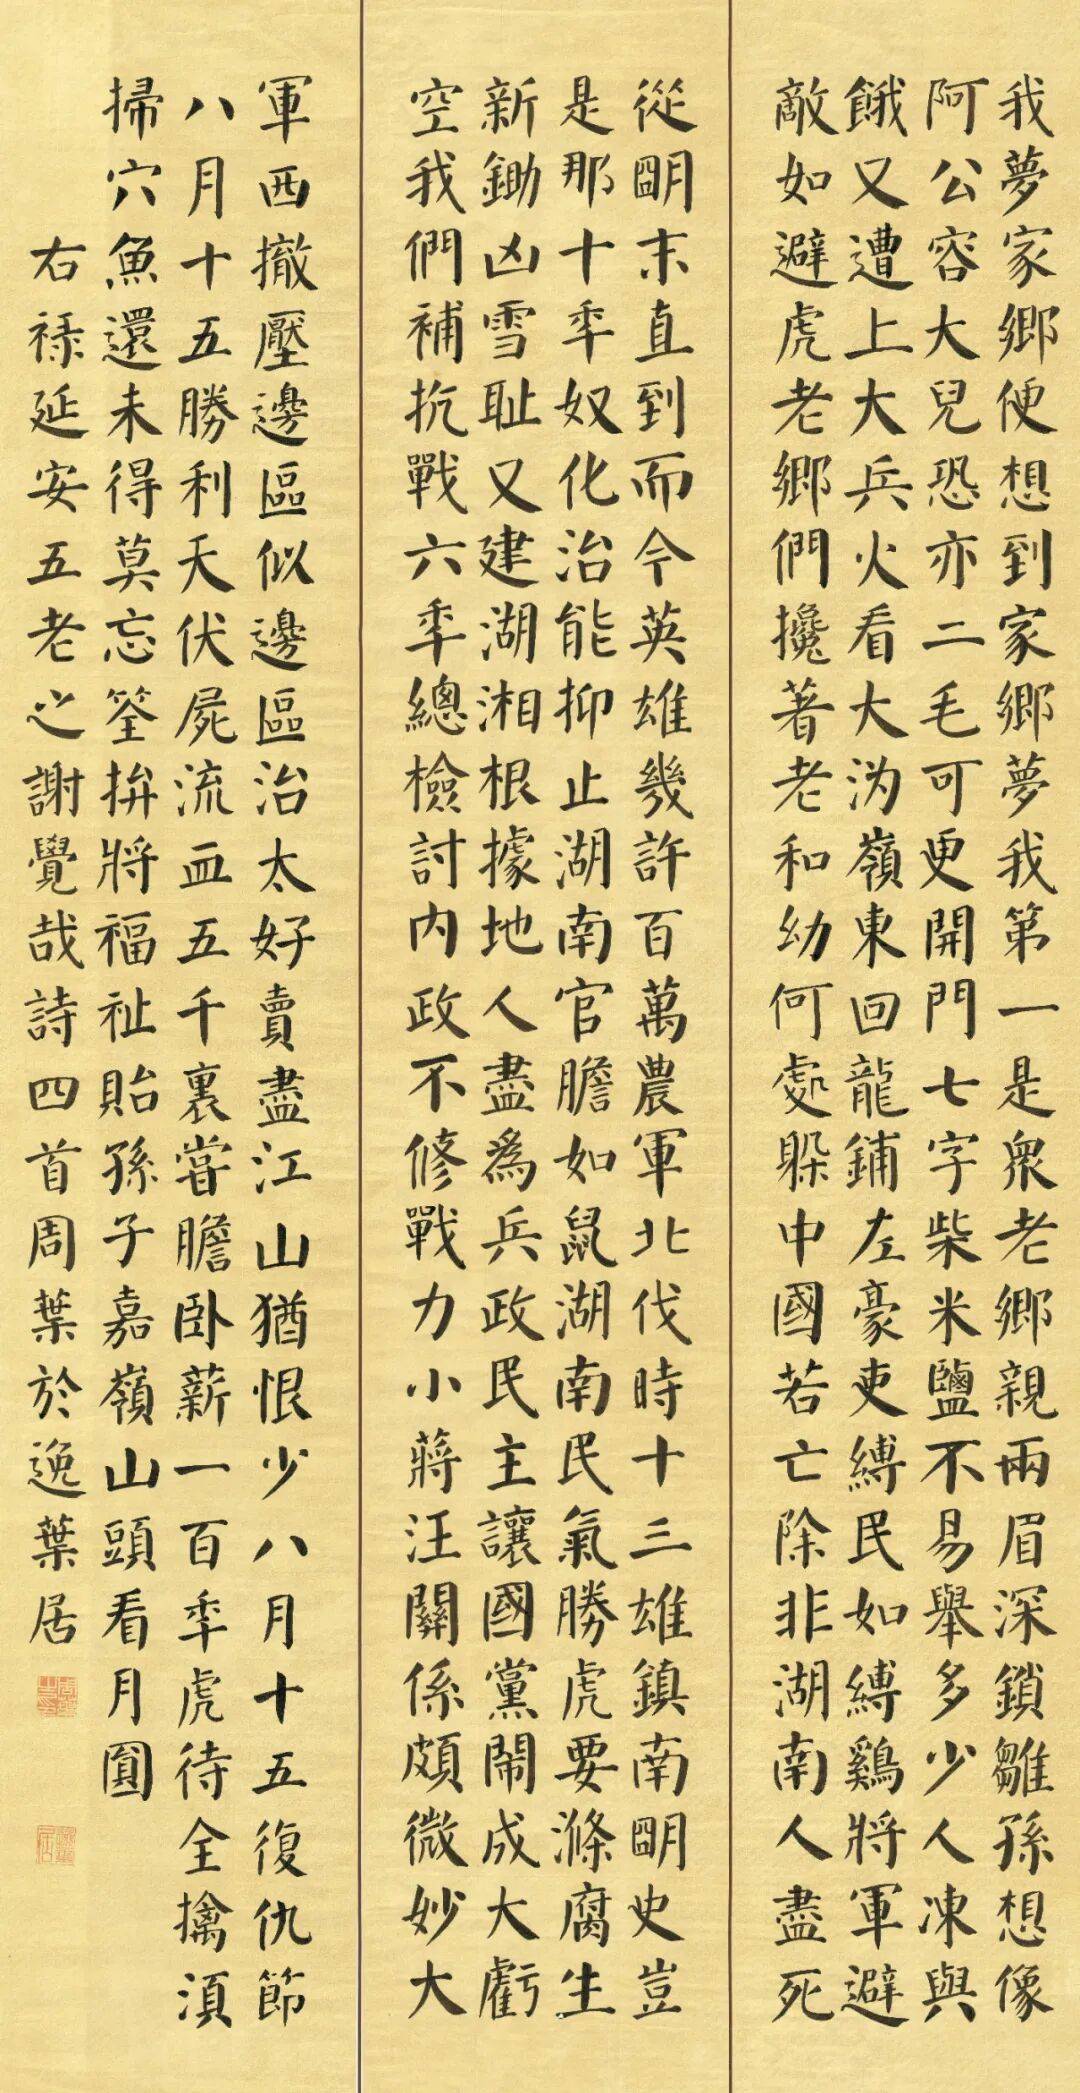 我夢家鄉便想到家鄉夢我第一是衆老鄉親兩眉深鎖雛孫想像
阿公容大兒恐亦二毛可更開門七字柴米鹽不易舉多少人凍與
餓又遭上大兵火看大溈嶺東回龍鋪左豪吏縛民如縛鷄將軍避
敵如避虎老鄉們攙著老和幼何處躲中國若亡除非湖南人盡死
從朙末直到而今英雄幾許百萬農軍北伐時十三雄鎮南朙史豈
是那十年奴化治能抑止湖南官膽如鼠湖南民氣勝虎要滌腐生
新鋤凶雪耻又建湖湘根據地人盡爲兵政民主讓國黨鬧成大虧
空我們補抗戰六年總檢討内政不修戰力小蔣汪關係頗微妙大
軍西撤壓邊區似邊區治太好賣盡江山猶恨少八月十五復仇節
八月十五勝利天伏屍流血五千裏嘗膽卧薪一百年虎待全擒須
掃穴魚還未得莫忘筌拚將福祉貽孫子嘉嶺山頭看月圓
右祿延安五老之謝覺哉詩四首周葉於逸葉居